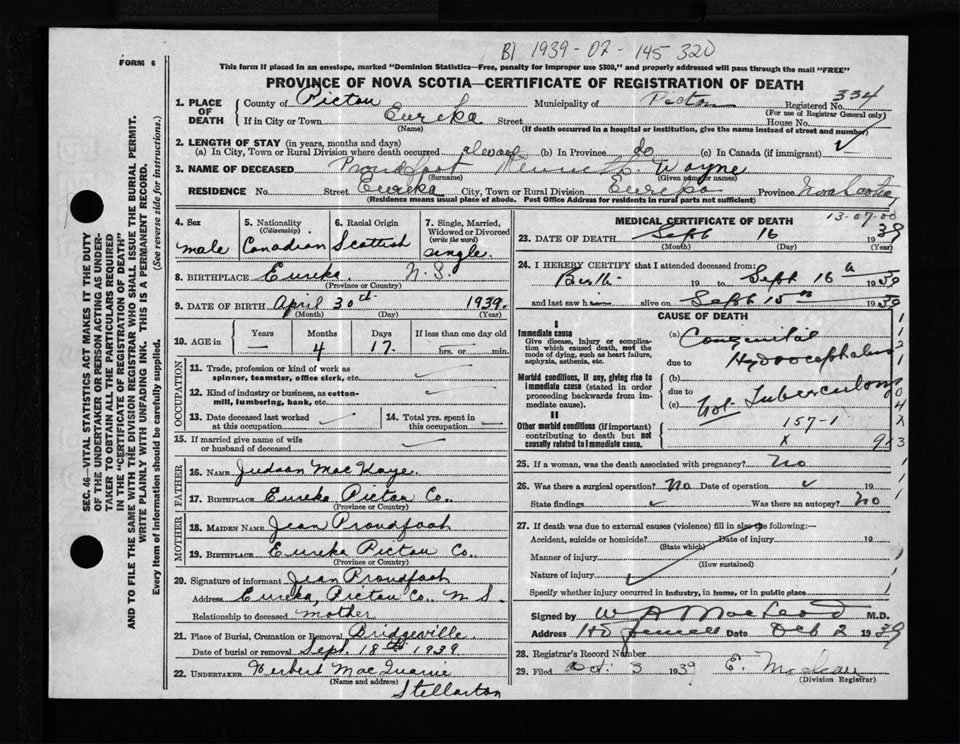 B1 1939-02-145 320
FORM 6
This form if placed in an envelope, marked "Dominion Statistics—Free, penalty for improper use $300," and properly addressed will pass through the mail "FREE"
PROVINCE OF NOVA SCOTIA—CERTIFICATE OF REGISTRATION OF DEATH
1. PLACE OF DEATH
County of Pictou Municipality of Pictou Registered No. 334
(For use of Registrar General only)
If in City or Town Eureka Street House No.
(Name) (If death occurred in a hospital or institution, give the name instead of street and number)
2. LENGTH OF STAY (in years, months and days)
(a) In City, Town or Rural Division where death occurred always (b) In Province do (c) In Canada (if immigrant) ✓
3. NAME OF DECEASED Proudfoot Kenneth Wayne
(Surname) (Given name or names)
RESIDENCE No. Street Eureka City, Town or Rural Division Eureka Province Nova Scotia
(Residence means usual place of abode. Post Office Address for residents in rural parts not sufficient)
4. Sex male
5. Nationality (Citizenship) Canadian
6. Racial Origin Scottish
7. Single, Married, Widowed or Divorced (write the word) single.
8. BIRTHPLACE Eureka. N.S.
(Province or Country)
9. DATE OF BIRTH April 30th 1939.
(Month) (Day) (Year)
10. AGE in Years — Months 4 Days 17. If less than one day old hrs. or min.
OCCUPATION
11. Trade, profession or kind of work as spinner, teamster, office clerk, etc.
12. Kind of industry or business, as cotton-mill, lumbering, bank, etc.
13. Date deceased last worked at this occupation
14. Total yrs. spent in this occupation
15. If married give name of wife or husband of deceased
FATHER
16. NAME Judson MacKaye.
17. BIRTHPLACE Eureka Pictou Co.
(Province or Country)
MOTHER
18. MAIDEN NAME Jean Proudfoot
19. BIRTHPLACE Eureka Pictou Co.
(Province or Country)
20. Signature of informant Jean Proudfoot
Address Eureka, Pictou Co. N S.
Relationship to deceased mother
21. Place of Burial, Cremation or Removal Bridgeville.
Date of burial or removal Sept. 18th 1939.
22. UNDERTAKER Herbert MacQuarrie
(Name and address)
Stellarton
MEDICAL CERTIFICATE OF DEATH
13-07-00
23. DATE OF DEATH Sept 16 1939
(Month) (Day)
24. I HEREBY CERTIFY that I attended deceased from:
Birth 19 to Sept 16th 1939
and last saw him alive on Sept 15th 1939
CAUSE OF DEATH
I
Immediate cause
Give disease, injury or complication which caused death, not the mode of dying, such as heart failure, asphyxia, asthenia, etc.
(a) Congenital
due to Hydrocephalus
Morbid conditions, if any, giving rise to immediate cause (stated in order proceeding backwards from immediate cause).
(b)
due to
(c) Not Tuberculous
II
Other morbid conditions (if important) contributing to death but not causally related to immediate cause.
157-1
25. If a woman, was the death associated with pregnancy? No
26. Was there a surgical operation? No Date of operation ✓ 19
State findings ✓ Was there an autopsy? No
27. If death was due to external causes (violence) fill in also the following:—
Accident, suicide or homicide? Date of injury 19
(State which)
Manner of injury
(How sustained)
Nature of injury
Specify whether injury occurred in industry, in home, or in public place
Signed by W A MacLeod M.D.
Address Date Oct 2 1939
28. Registrar's Record Number
29. Filed Oct. 3 1939 E. McLean
(Division Registrar)
SEC. 46—VITAL STATISTICS ACT MAKES IT THE DUTY OF THE UNDERTAKER OR PERSON ACTING AS UNDERTAKER TO OBTAIN ALL THE PARTICULARS REQUIRED IN THE "CERTIFICATE OF REGISTRATION OF DEATH"
AND TO FILE THE SAME WITH THE DIVISION REGISTRAR WHO SHALL ISSUE THE BURIAL PERMIT.
WRITE PLAINLY WITH UNFADING INK. THIS IS A PERMANENT RECORD.
Every item of information should be carefully supplied. (See reverse side for instructions.)